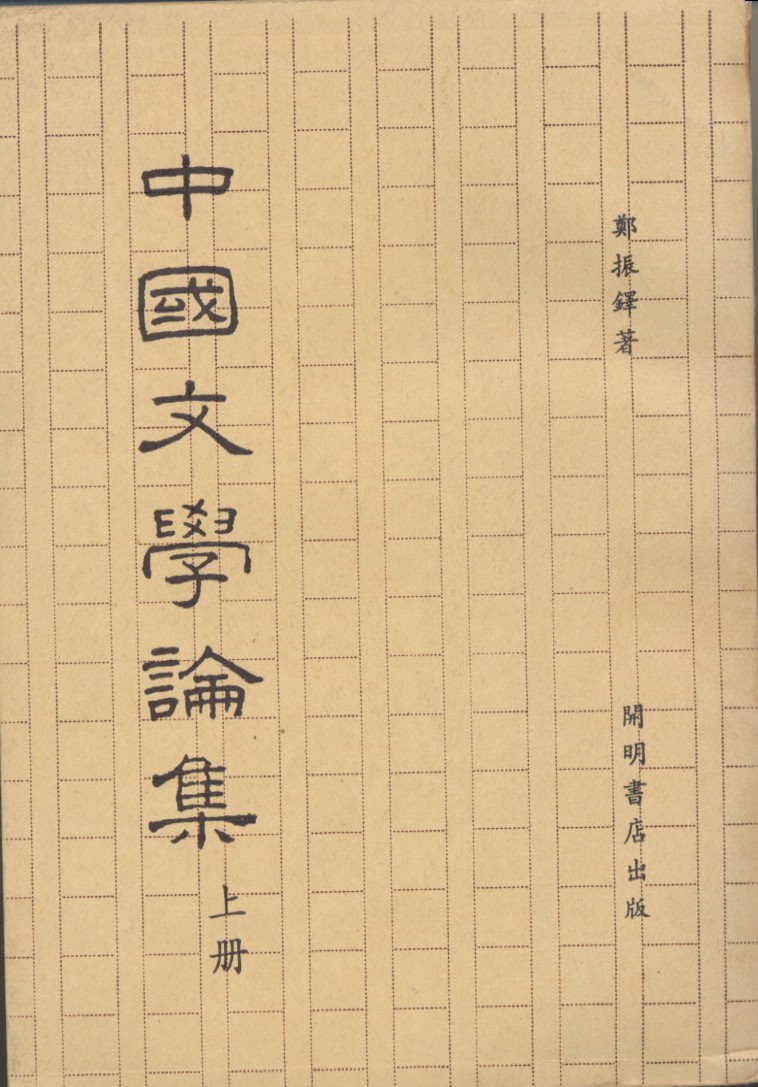 鄭振鐸著
開明書店出版
中國文學論集
上册